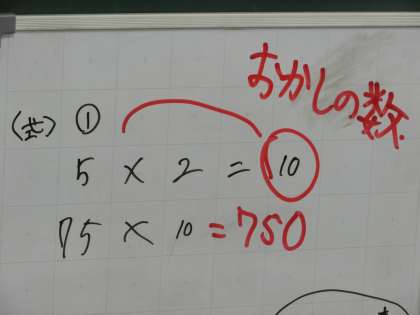 おかしの数
(式) ①
5 × 2 = 10
75 × 10 = 750